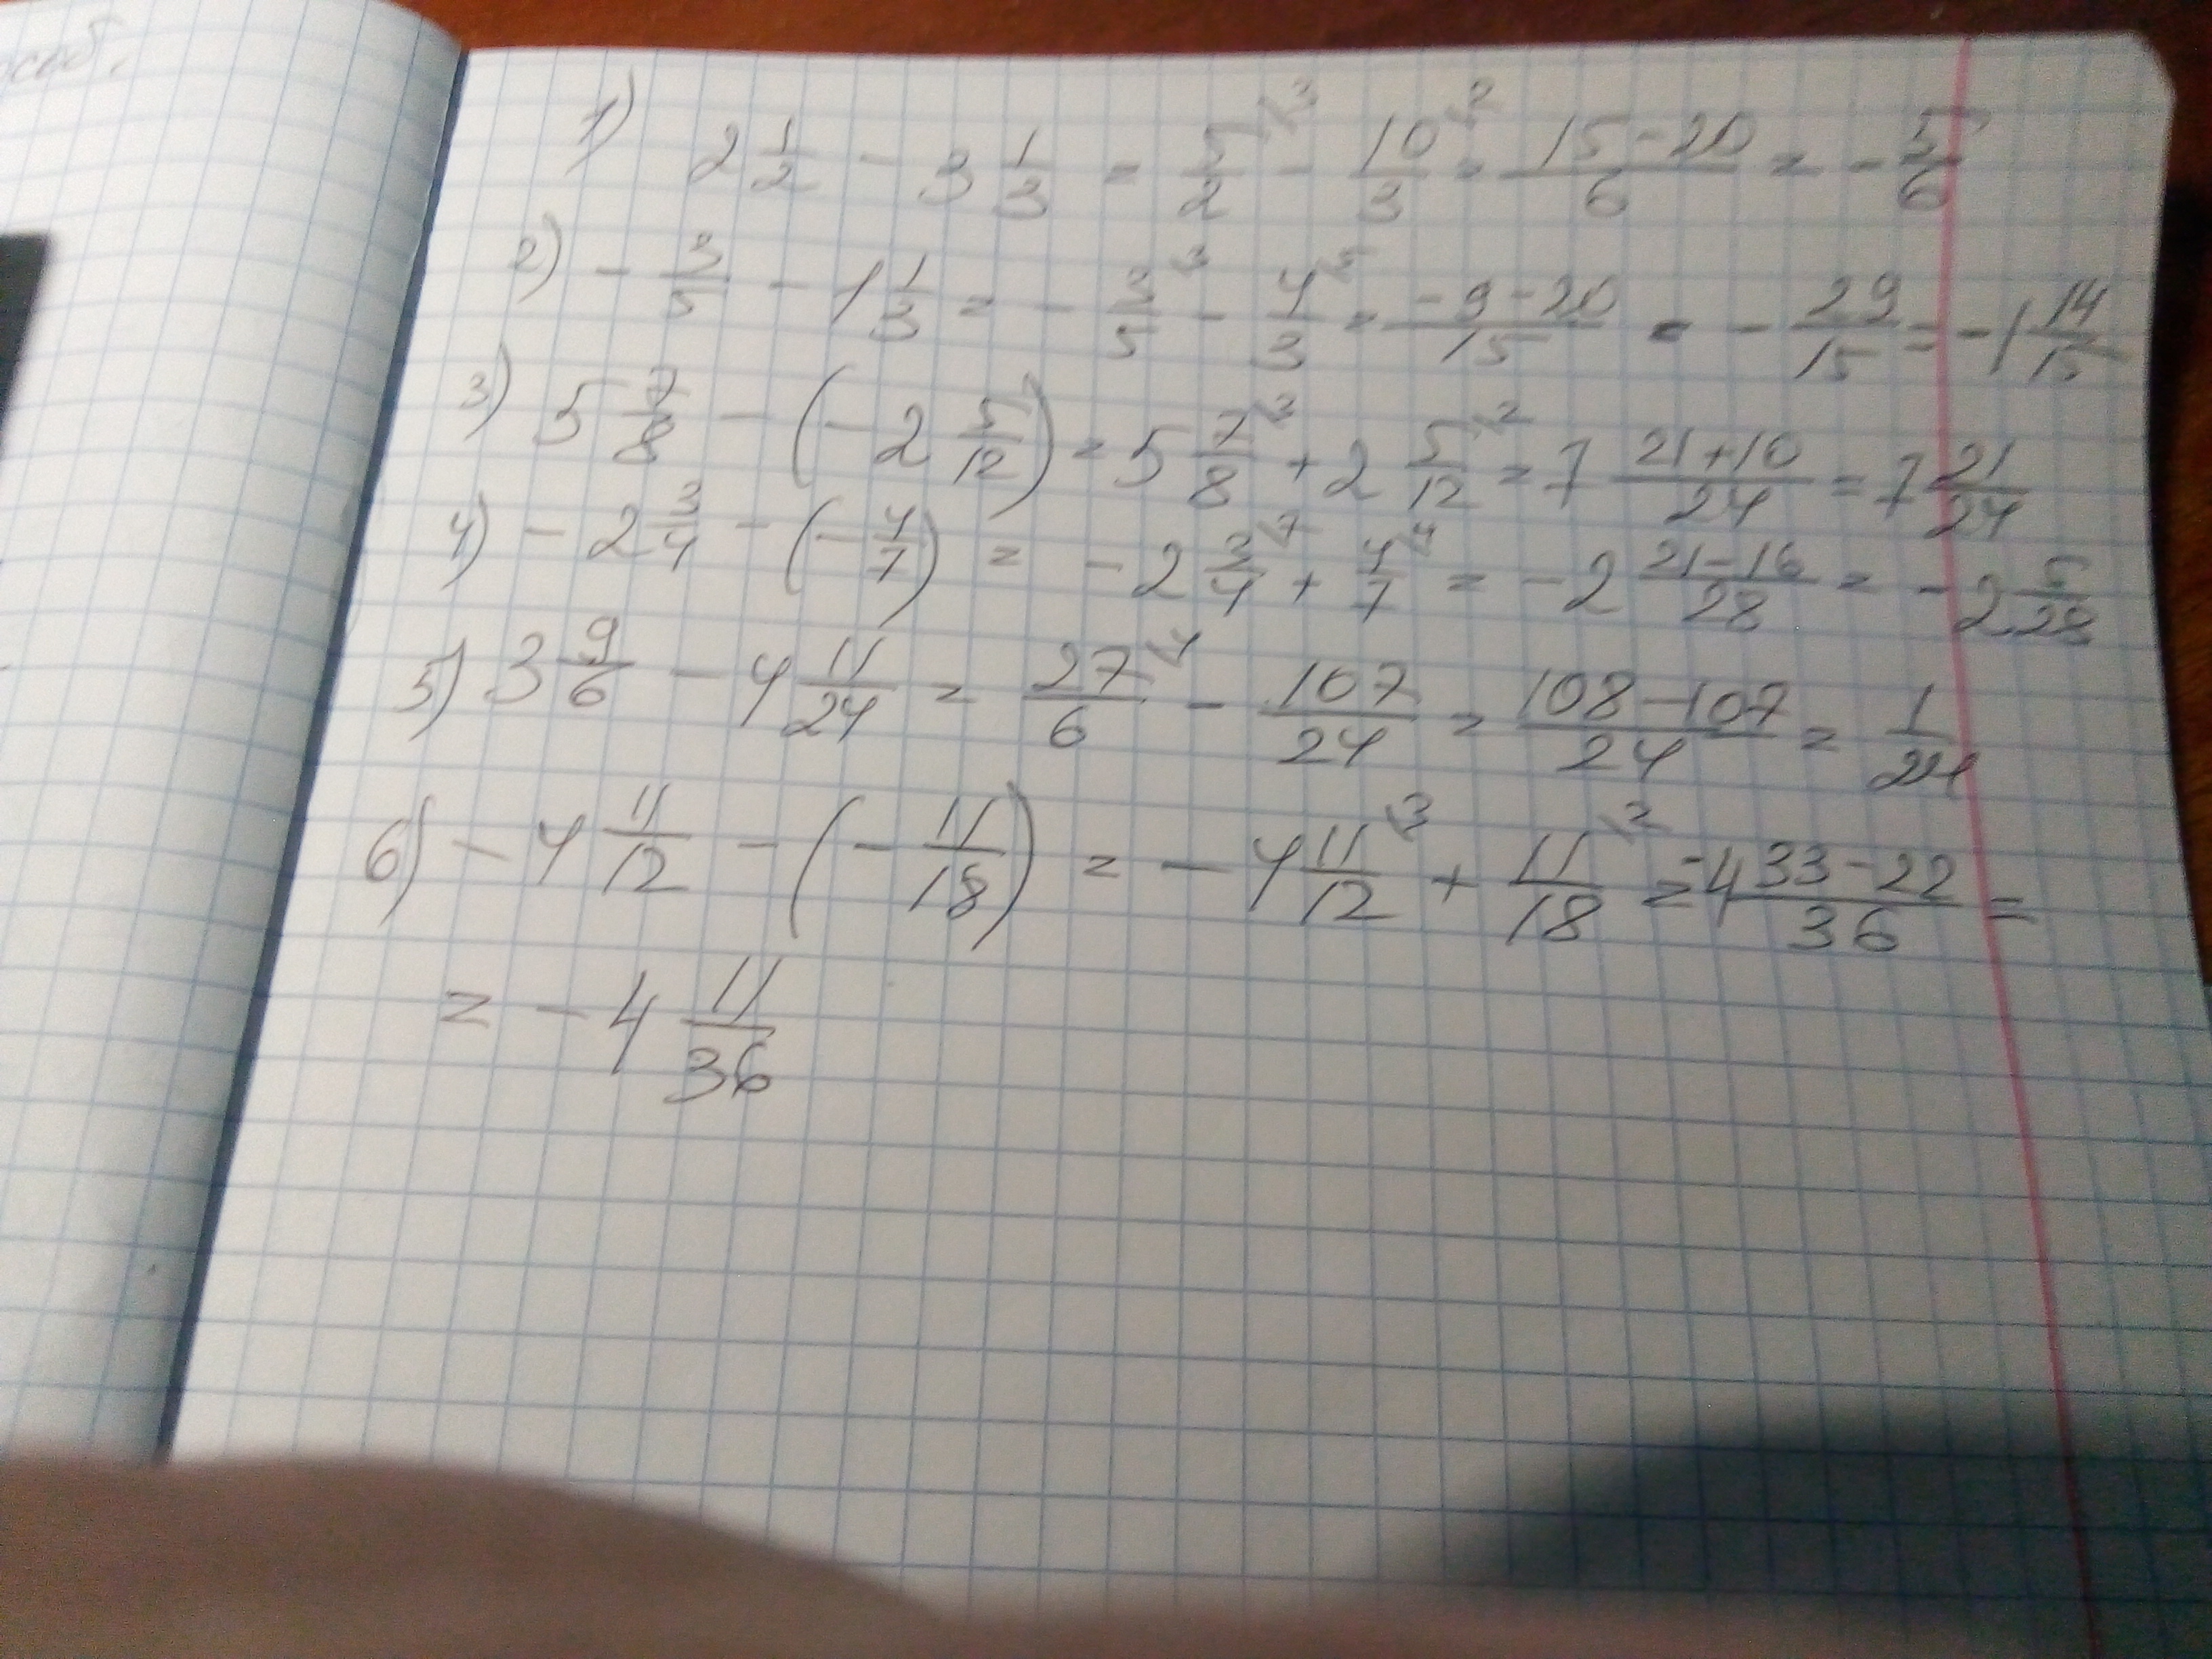 1) 2 1/2 - 3 1/3 = 5/2 \3 - 10/3 \2 = 15-20/6 = - 5/6
2) - 3/5 - 1 1/3 = - 3/5 \3 - 4/3 \5 = -9-20/15 = - 29/15 = -1 14/15
3) 5 7/8 - (-2 5/12) = 5 7/8 \3 + 2 5/12 \2 = 7 21+10/24 = 7 21/24
4) - 2 3/4 - (- 4/7) = - 2 3/4 \7 + 4/7 \4 = -2 21-16/28 = -2 5/28
5) 3 9/6 - 4 11/24 = 27/6 \4 - 107/24 = 108-107/24 = 1/24
6) - 4 11/12 - (- 11/18) = - 4 11/12 \3 + 11/18 \2 = -4 33-22/36 =
= - 4 11/36